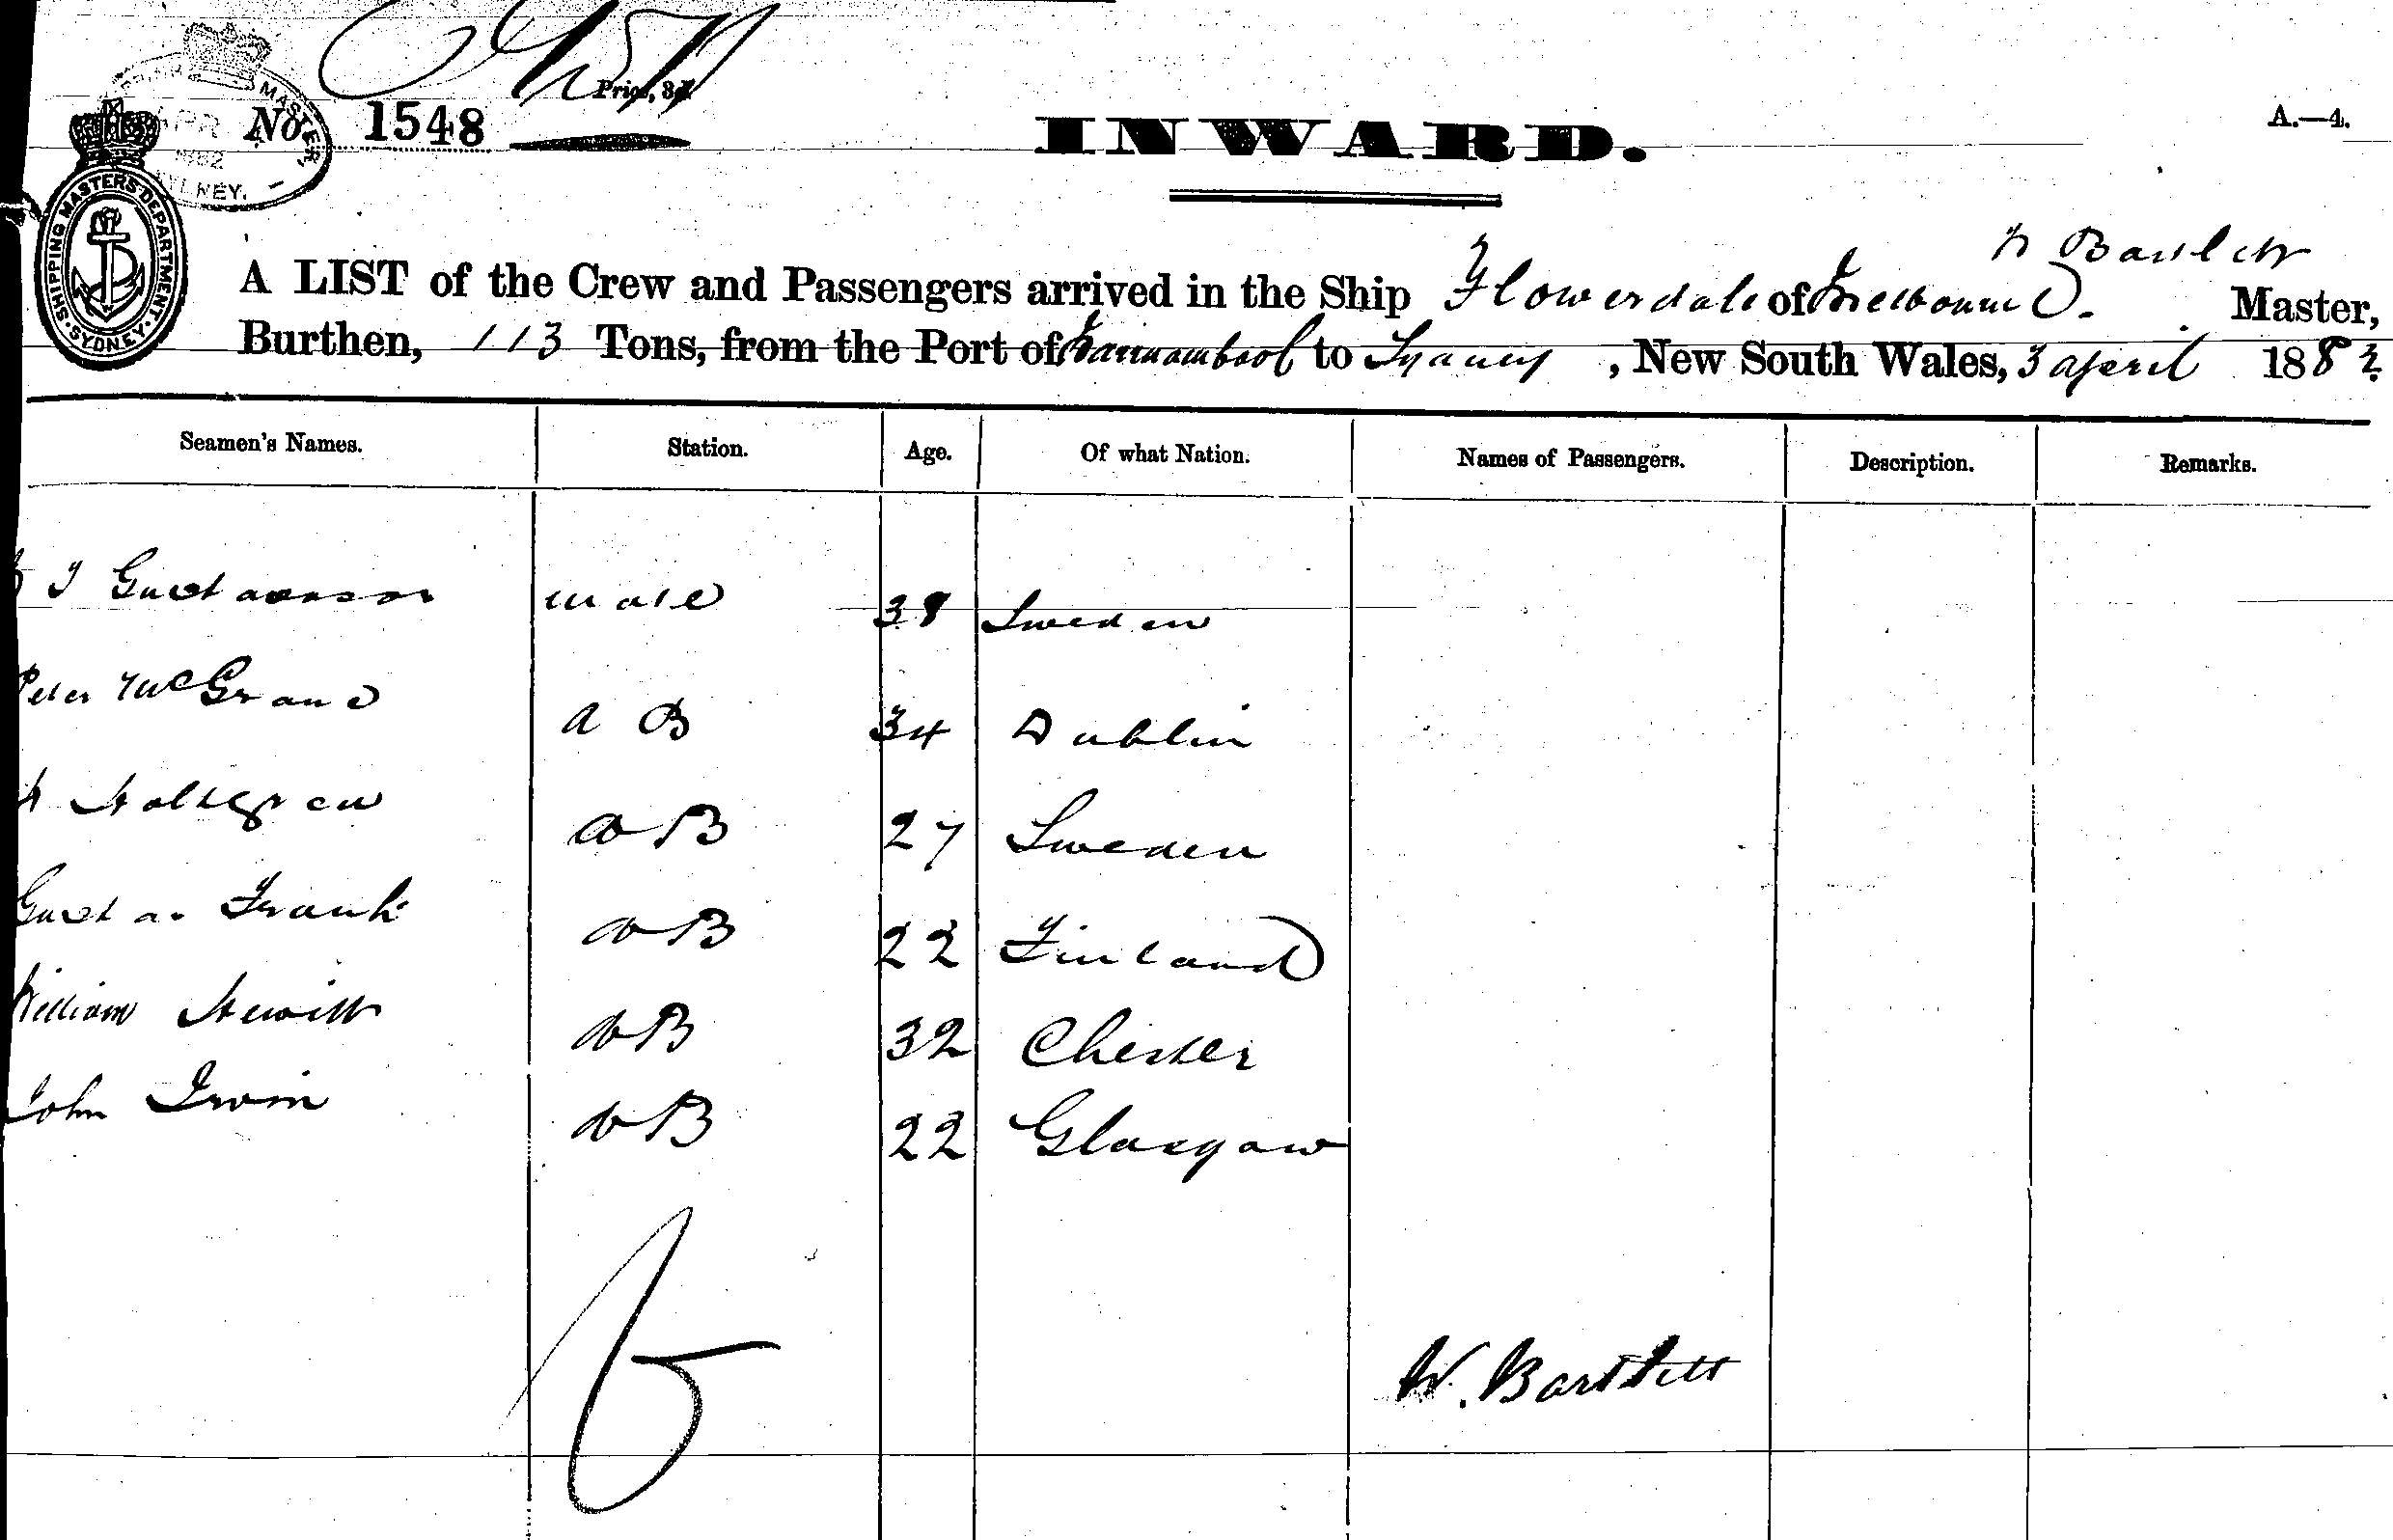 SHIPPING MASTER
APR
1882
SYDNEY.
Price, 3d.
No. 1548
INWARD.
A.—4.
SHIPPING MASTERS DEPARTMENT. SYDNEY.
W Bartlett
A LIST of the Crew and Passengers arrived in the Ship Flowerdale of Melbourne. Master,
Burthen, 113 Tons, from the Port of Warrnambool to Sydney, New South Wales, 3 April 1882.
Seamen's Names. Station. Age. Of what Nation. Names of Passengers. Description. Remarks.
Gustavason mate 38 Sweden
Peter McGrane A B 34 Dublin
Holtgren A B 27 Sweden
Gusta. Frank A B 22 Finland
William Hewitt A B 32 Chester
John Irwin A B 22 Glasgow
6
W. Bartlett